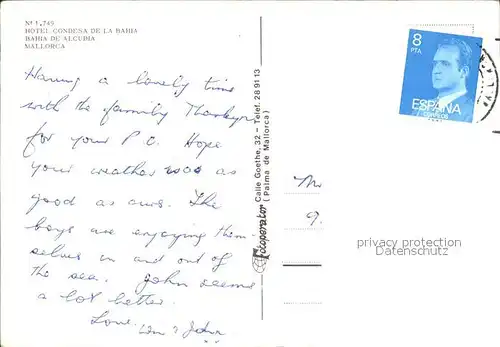 Nº 1.749
HOTEL CONDESA DE LA BAHIA
BAHIA DE ALCUDIA
MALLORCA
Having a lovely time
with the family Thankyou
for your P.C. Hope
your weather was as
good as ours. The
boys are enjoying them-
selves in and out of
the sea. John seems
a lot better.
Love
John
Fotoperator Calle Goethe, 32 – Telef. 28 91 13
(Palma de Mallorca)
8
PTA
ESPAÑA
CORREOS
privacy protection
Datenschutz